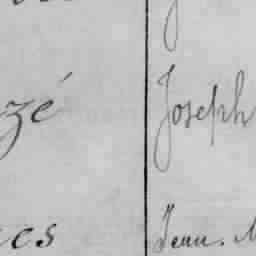 zé Joseph
es Jean. M